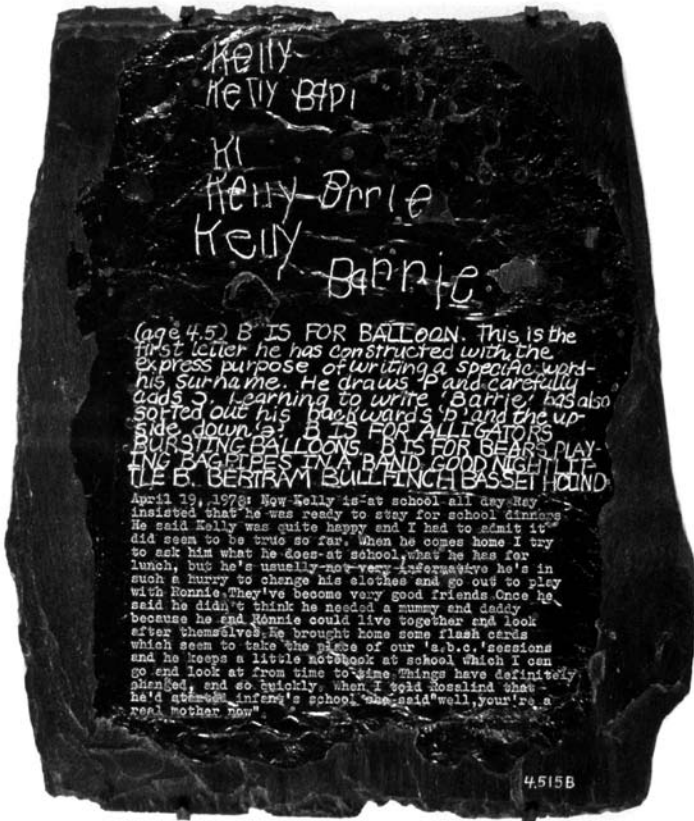 Kelly
Kelly BAPI
KI
Kelly Brrie
Kelly
Barrie
(age 4.5) B IS FOR BALLOON. This is the
first letter he has constructed with the
express purpose of writing a specific word-
his surname. He draws P and carefully
adds ɔ. Learning to write 'Barrie' has also
sorted out his backwards 'b' and the up-
side down 'a'. B IS FOR ALLIGATORS
BURSTING BALLOONS. B IS FOR BEARS PLAY-
ING BAGPIPES IN A BAND. GOOD NIGHT LIT-
TLE B. BERTRAM BULLFINCH BASSET HOUND
April 19, 1978: Now Kelly is at school all day Ray
insisted that he was ready to stay for school dinners
He said Kelly was quite happy and I had to admit it
did seem to be true so far. When he comes home I try
to ask him what he does at school, what he has for
lunch, but he's usually not very informative he's in
such a hurry to change his clothes and go out to play
with Ronnie. They've become very good friends Once he
said he didn't think he needed a mummy and daddy
because he and Ronnie could live together and look
after themselves. He brought home some flash cards
which seem to take the place of our 'a.b.c.' sessions
and he keeps a little notebook at school which I can
go and look at from time to time Things have definitely
changed, and so quickly, when I told Rosalind that
he'd started infant's school she said "well, your're a
real mother now"
4.515B